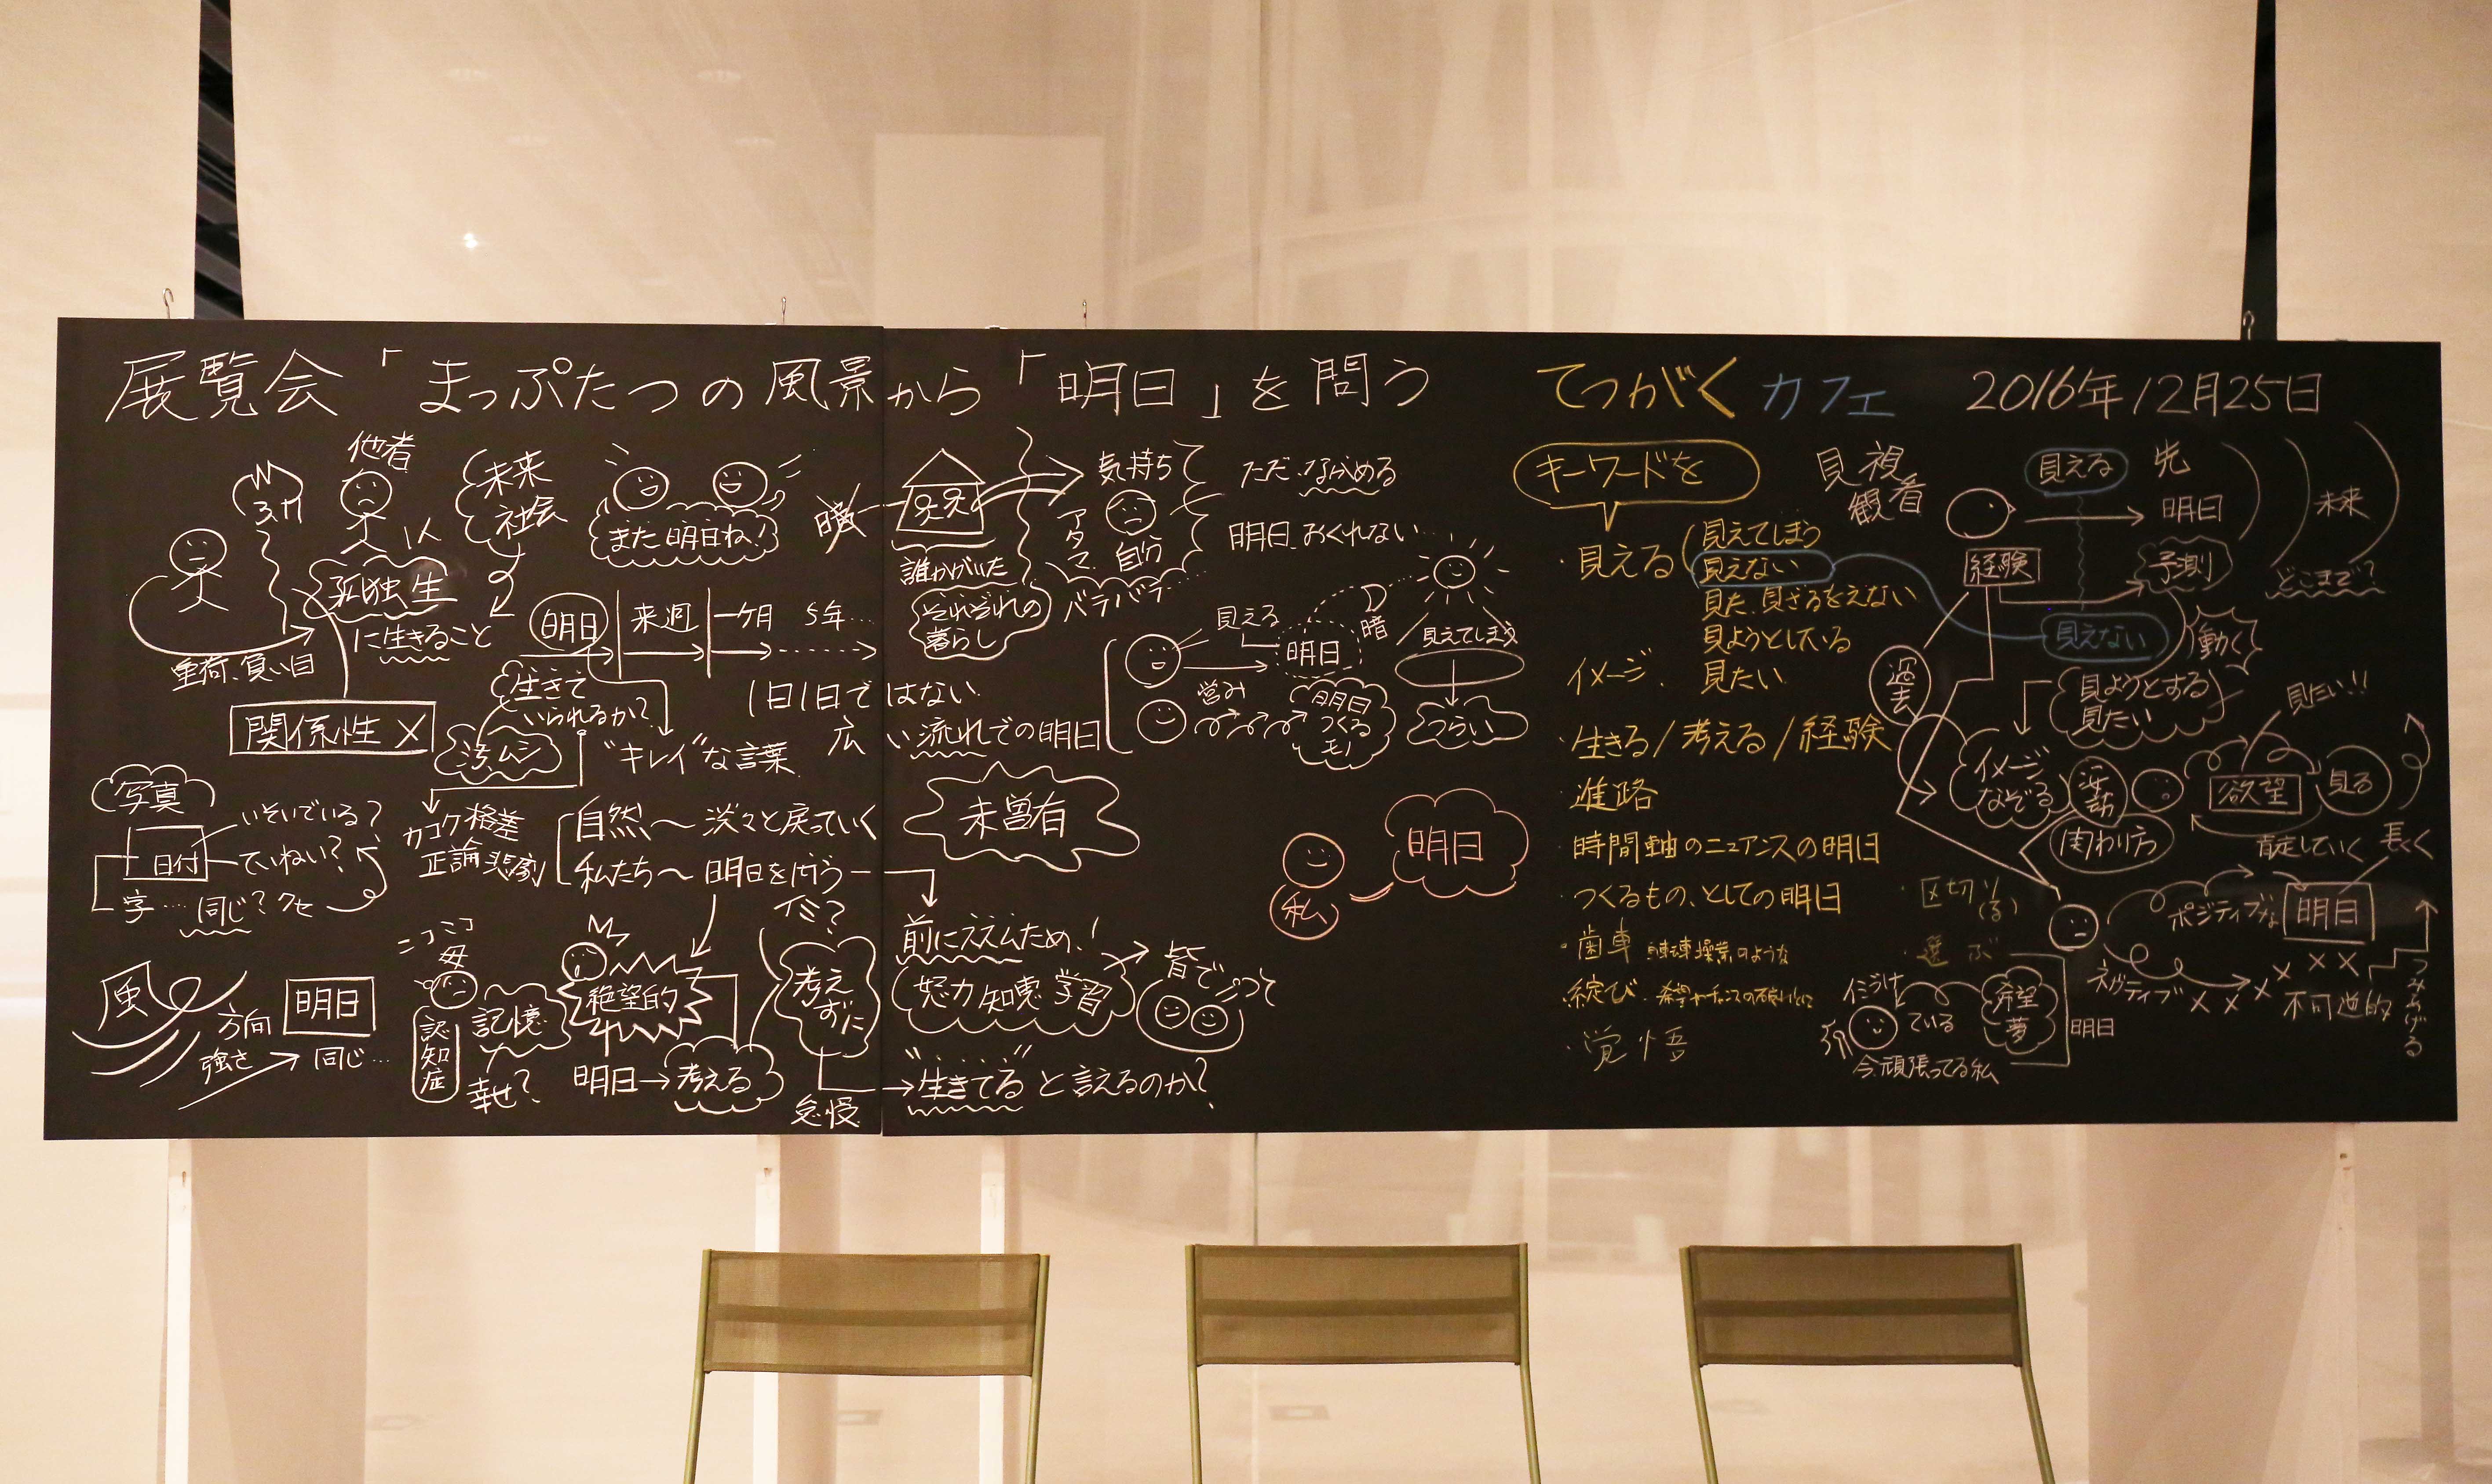 展覧会「まっぷたつの風景から「明日」を問う
てつがくカフェ 2016年12月25日
3.11
他者
1人
孤独生
に生きること
重荷、負い目
関係性 X
未来
社会
また明日ね!
明日
来週
一ケ月
5年…
生きて
いられるか?
"キレイ"な言葉
1日1日ではない
広い流れでの明日
カコク格差
正論 悲劇
写真
日付
いそいでいる?
ていねい?
字…同じ?クセ
自然〜淡々と戻っていく
私たち〜明日を問う
イミ?
風
方向
強さ
明日
同じ…
ニコニコ
母
認知症
記憶
幸せ?
絶望的
明日→考える
考え
ずに
怠慢
誰かがいた
それぞれの
暮らし
気持ち
アタマ
自分
バラバラ…
ただ、ながめる
明日、おくれない…
見える
営み
明日
暗
明日
つくる
モノ
見えてしまう
つらい
未曽有
前にススムため!
努力 知恵 学習
皆で
"生きてる"と言えるのか?
私
明日
キーワードを
・見える
見えてしまう
見えない
見た、見ざるをえない
見ようとしている
見たい
イメージ
・生きる/考える/経験
・進路
・時間軸のニュアンスの明日
・つくるもの、としての明日
・歯車
・綻び
・覚悟
・区切り
(る)
・選ぶ
見 視
観 看
見える
先
明日
未来
どこまで?
経験
予測
見えない
動く
過去
見ようとする
見たい
見たい!!
イメージ
なぞる
関わり方
欲望
見る
肯定していく
長く
ポジティブな
明日
ネガティブ
不可逆的
つみあげる
希望
夢
ている
明日
今、頑張ってる私